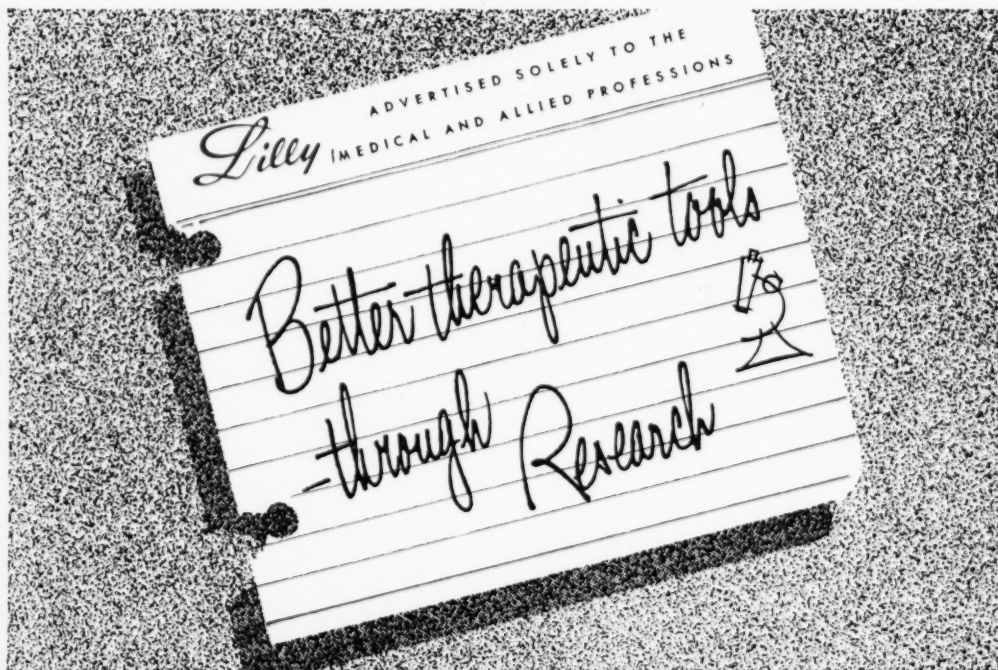 ADVERTISED SOLELY TO THE
Lilly / MEDICAL AND ALLIED PROFESSIONS
Better therapeutic tools
-through Research